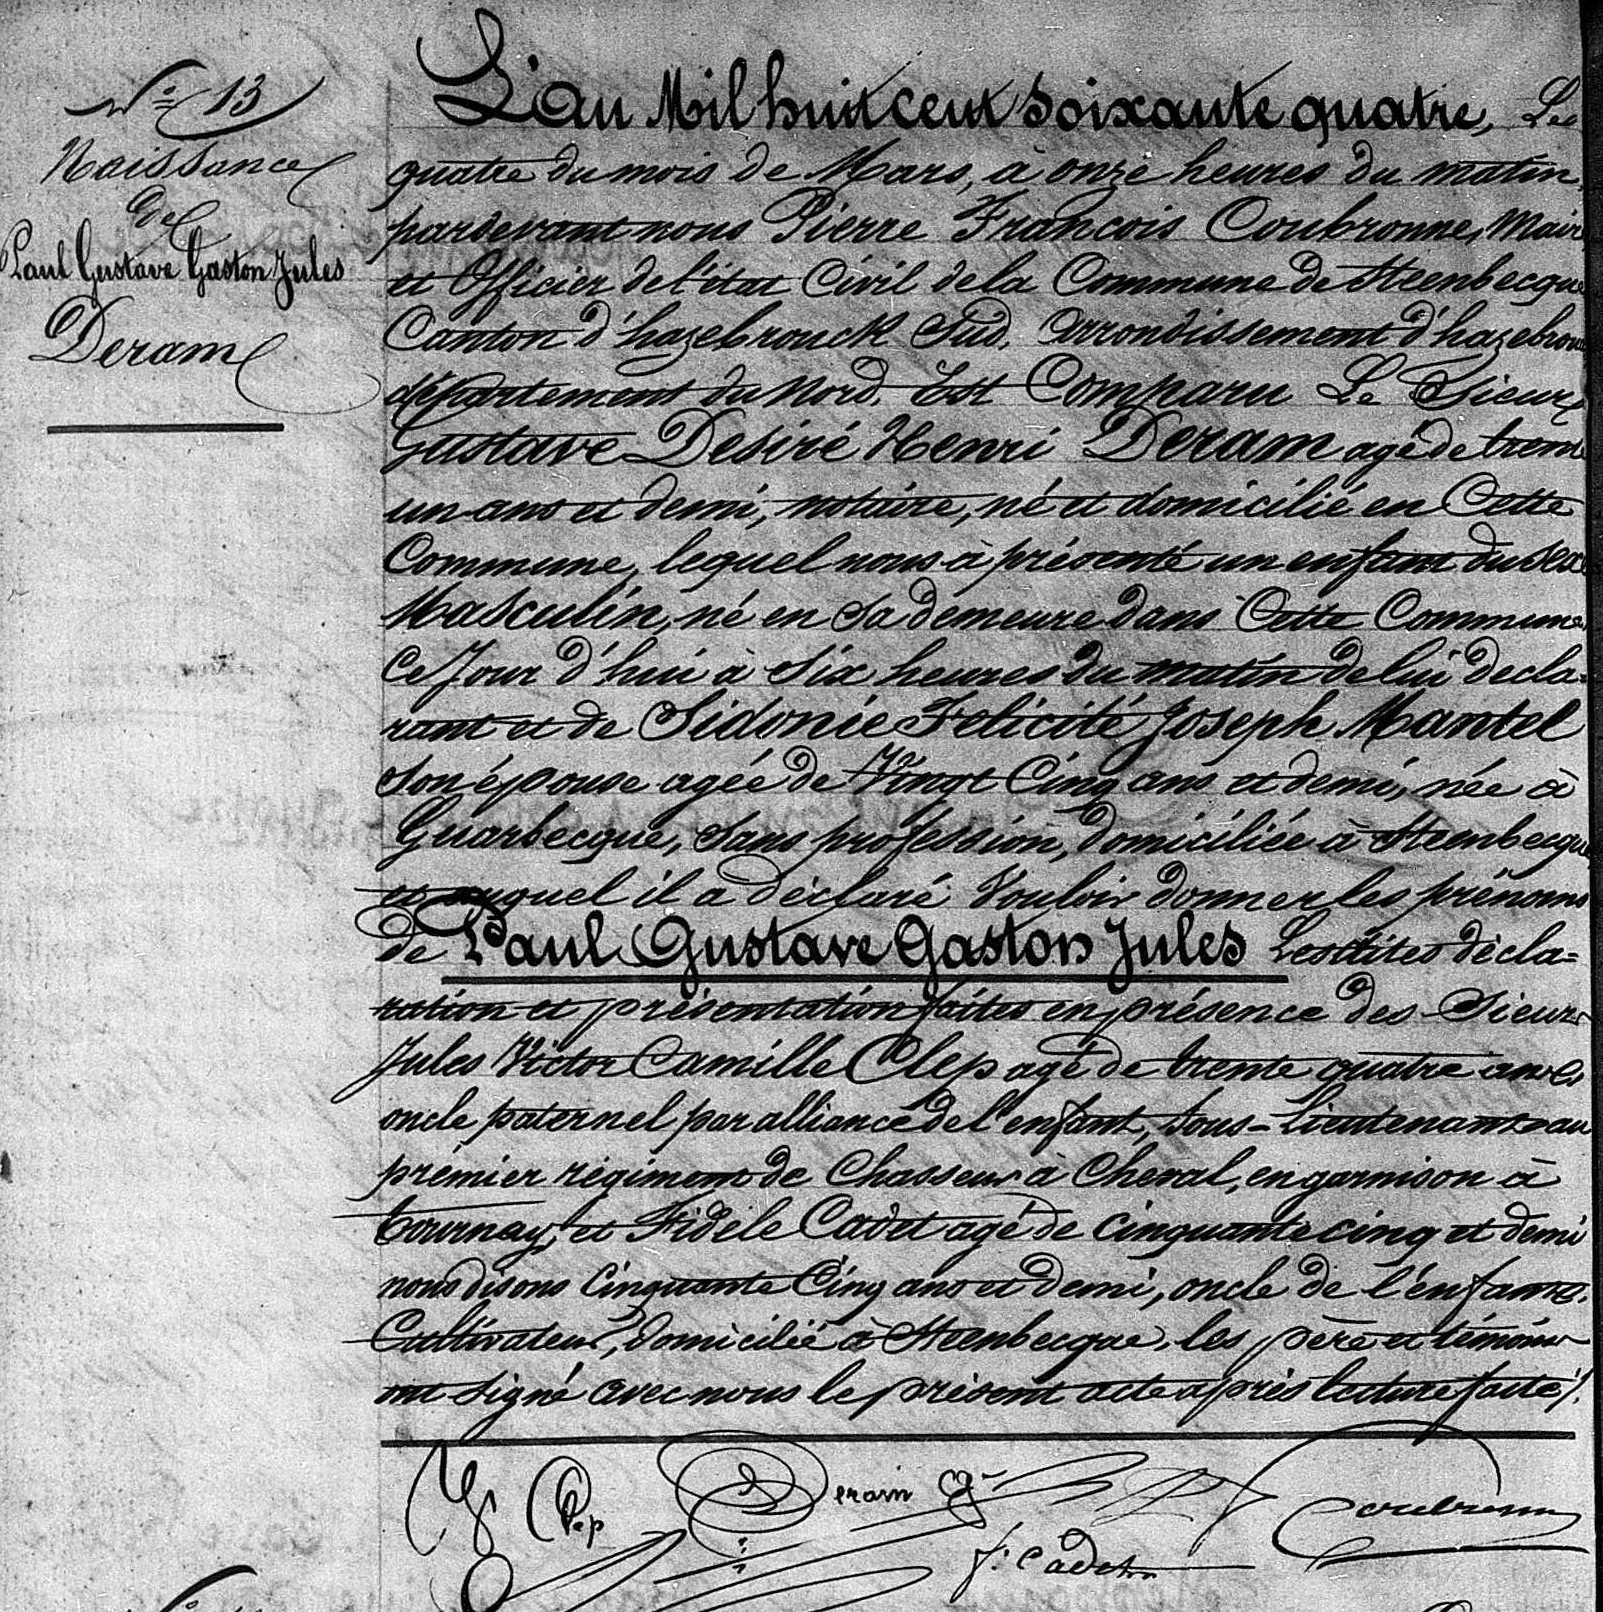 N° 13
Naissance
de
Paul Gustave Gaston Jules
Deram
L'an Mil huit cent soixante quatre, Le
quatre du mois de Mars, à onze heures du matin,
pardevant nous Pierre François Coubronne, Maire
et Officier de l'état Civil de la Commune de Steenbecque
Canton d'hazebrouck Sud, arrondissement d'hazebrou
département du Nord. Est Comparu Le Sieur
Gustave Desiré Henri Deram agé de trente
un ans et demi, notaire, né et domicilié en Cette
Commune, lequel nous à présenté un enfant du sexe
Masculin, né en sa demeure dans Cette Commune
Ce Jour d'hui à Six heures du matin de lui decla-
rant et de Sidonie Felicité Joseph Mantel
son épouse agée de Vingt Cinq ans et demi, née à
Guarbecque, sans profession, domiciliée à Steenbecque
et auquel il a déclaré Vouloir donner les prénoms
de Paul Gustave Gaston Jules Lesdites décla=
ration et présentation faites en présence des Sieurs
Jules Victor Camille Clep agé de trente quatre ans
oncle paternel par alliance de l'enfant, Sous-Lieutenant au
prémier régiment de Chasseurs à Cheval, en garnison à
tournay, et Fidele Cadet agé de cinquante cinq et demi
nous disons Cinquante Cinq ans et demi, oncle de l'enfant.
Cultivateur, domicilié à Steenbecque, les père et témoins
ont signé avec nous le présent acte après lecture faite.
Clep Deram Coubronne
f. Cadet